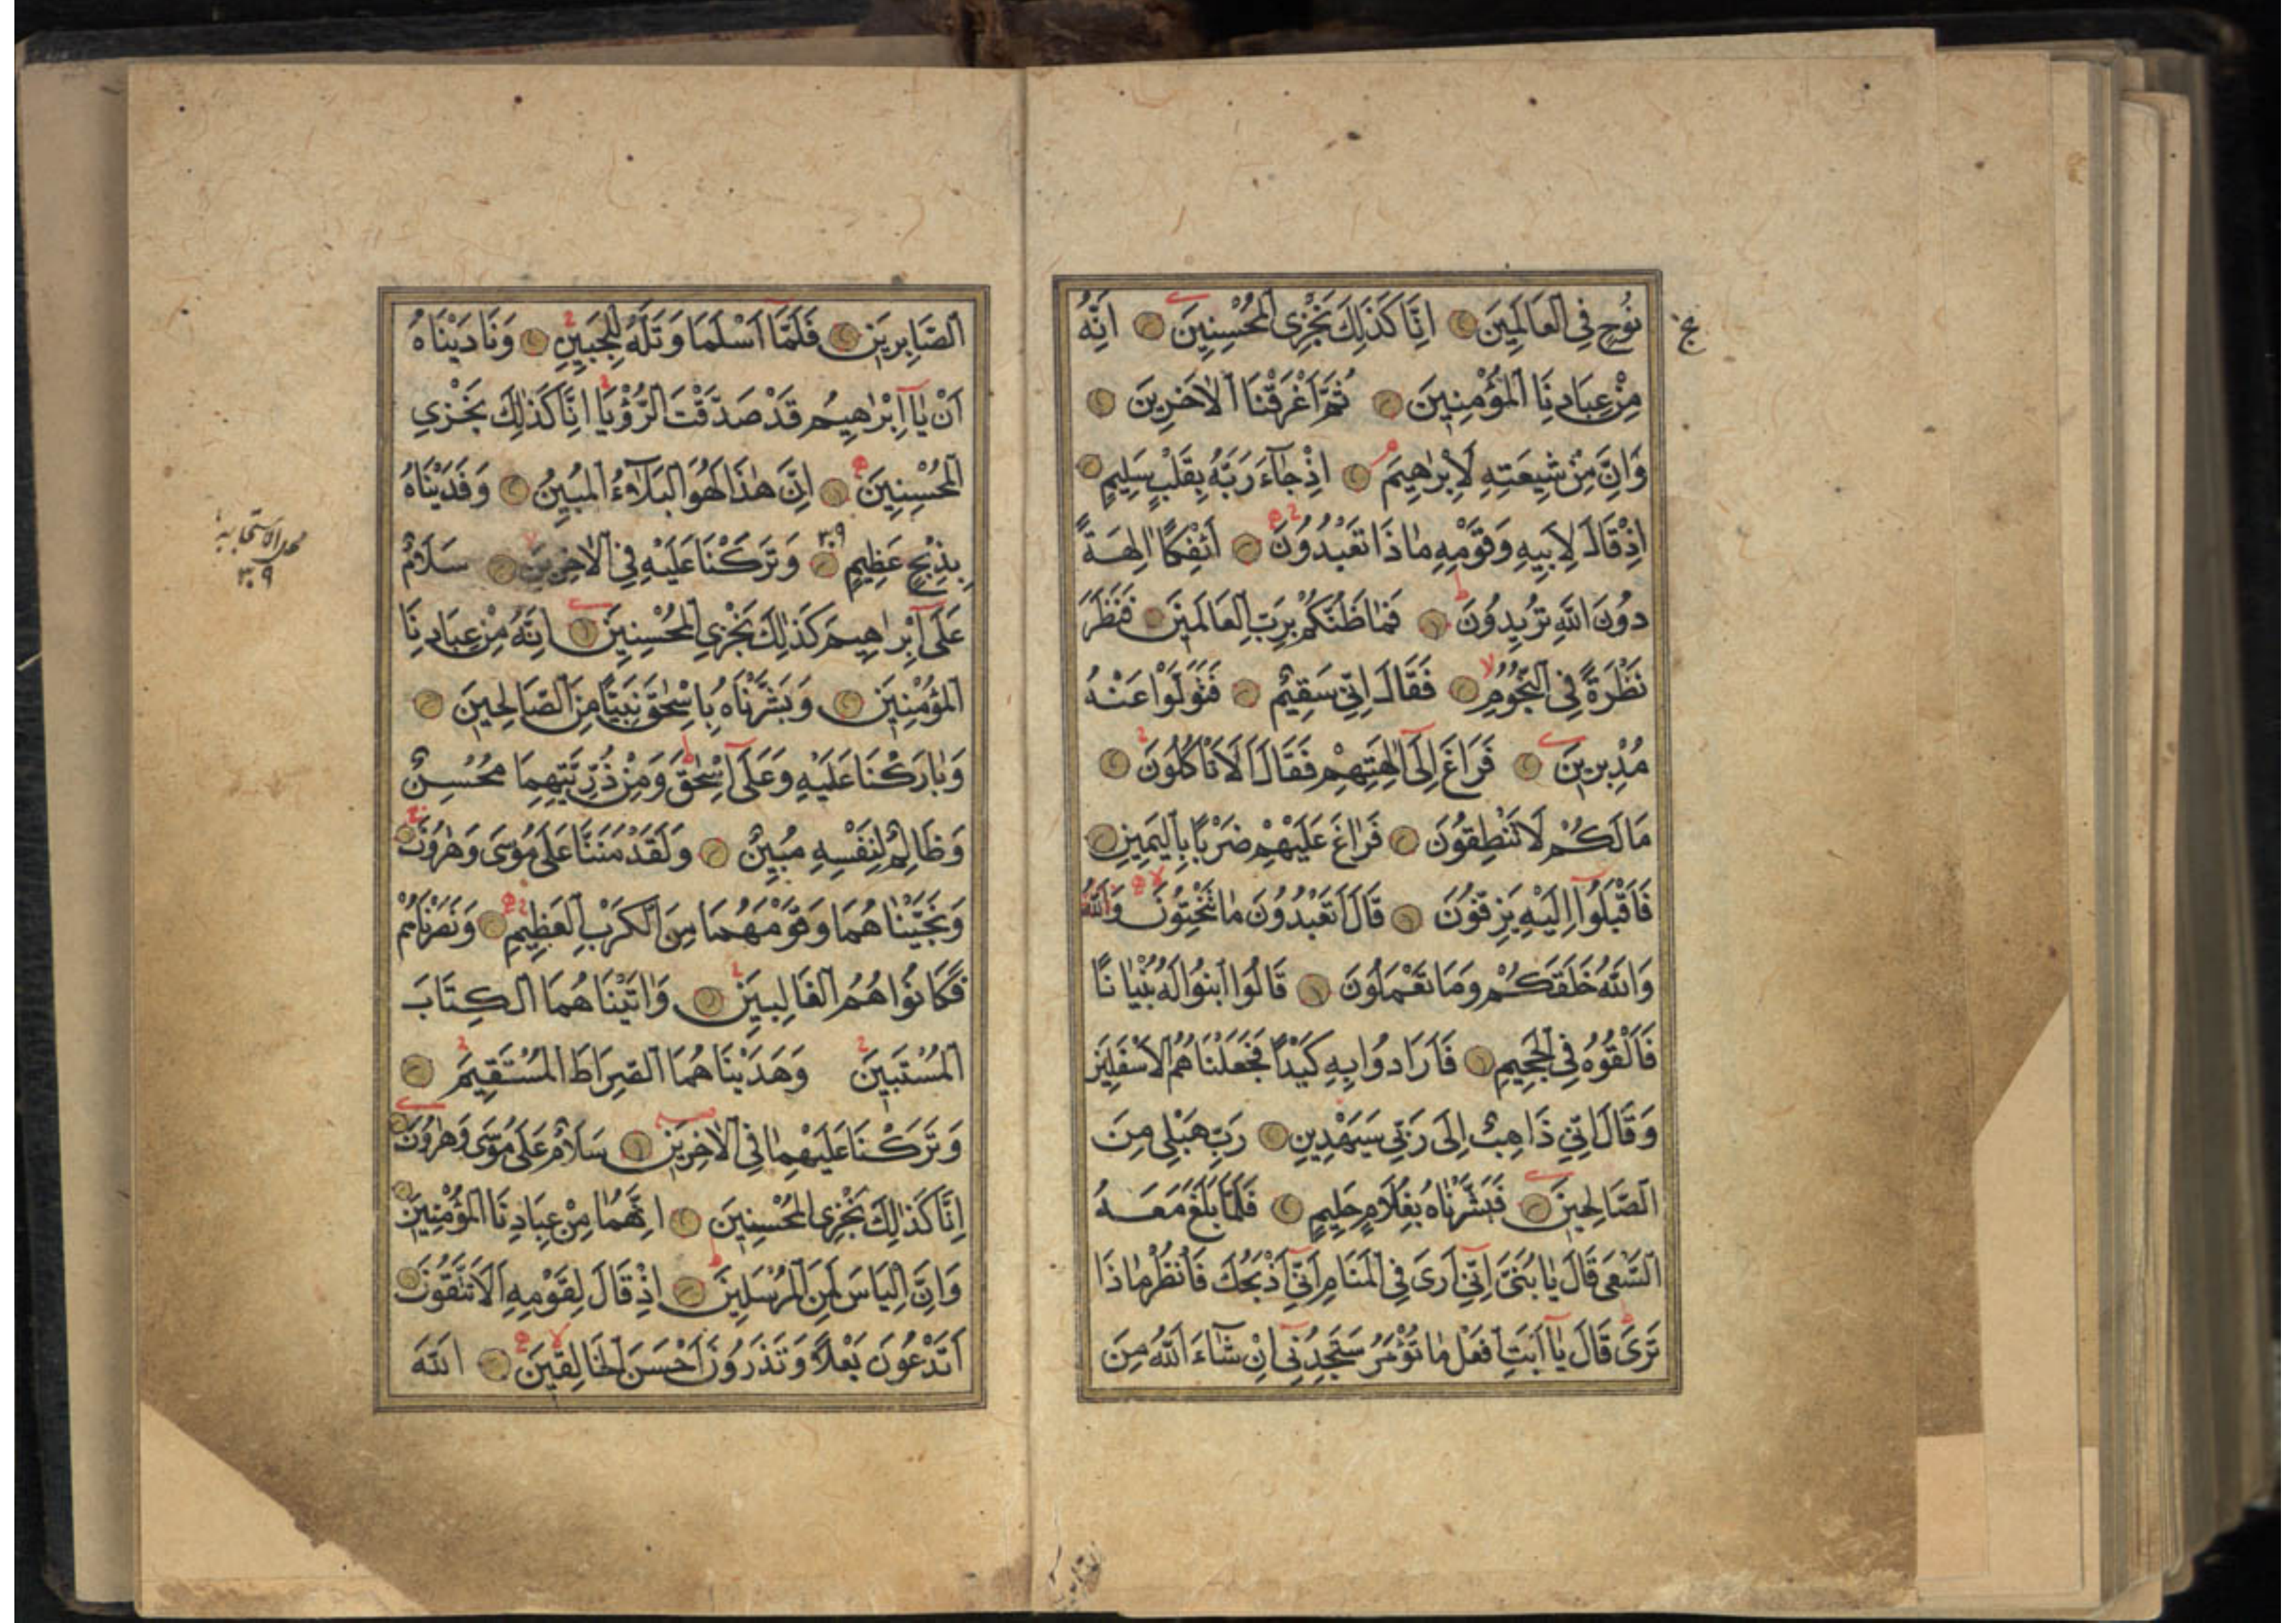 نُوحٍ فِى الْعَالَمِينَ اِنَّا كَذَلِكَ نَجْزِى الْمُحْسِنِينَ اِنَّهُ
مِنْ عِبَادِنَا الْمُؤْمِنِينَ ثُمَّ اَغْرَقْنَا الْاٰخَرِينَ
وَاِنَّ مِنْ شِيعَتِهِ لَاِبْرٰهِيمَ اِذْ جَآءَ رَبَّهُ بِقَلْبٍ سَلِيمٍ
اِذْ قَالَ لِاَبِيهِ وَقَوْمِهِ مَاذَا تَعْبُدُونَ اَئِفْكًا اٰلِهَةً
دُونَ اللّٰهِ تُرِيدُونَ فَمَا ظَنُّكُمْ بِرَبِّ الْعَالَمِينَ فَنَظَرَ
نَظْرَةً فِى النُّجُومِ فَقَالَ اِنِّى سَقِيمٌ فَتَوَلَّوْا عَنْهُ
مُدْبِرِينَ فَرَاغَ اِلَىٓ اٰلِهَتِهِمْ فَقَالَ اَلَا تَاْكُلُونَ
مَا لَكُمْ لَا تَنْطِقُونَ فَرَاغَ عَلَيْهِمْ ضَرْبًا بِالْيَمِينِ
فَاَقْبَلُوٓا اِلَيْهِ يَزِفُّونَ قَالَ اَتَعْبُدُونَ مَا تَنْحِتُونَ وَاللّٰهُ
وَاللّٰهُ خَلَقَكُمْ وَمَا تَعْمَلُونَ قَالُوا ابْنُوا لَهُ بُنْيَانًا
فَاَلْقُوهُ فِى الْجَحِيمِ فَاَرَادُوا بِهِ كَيْدًا فَجَعَلْنَاهُمُ الْاَسْفَلِينَ
وَقَالَ اِنِّى ذَاهِبٌ اِلَى رَبِّى سَيَهْدِينِ رَبِّ هَبْ لِى مِنَ
الصَّالِحِينَ فَبَشَّرْنَاهُ بِغُلَامٍ حَلِيمٍ فَلَمَّا بَلَغَ مَعَهُ
السَّعْىَ قَالَ يَا بُنَىَّ اِنِّىٓ اَرَى فِى الْمَنَامِ اَنِّىٓ اَذْبَحُكَ فَانْظُرْ مَاذَا
تَرَى قَالَ يَآ اَبَتِ افْعَلْ مَا تُؤْمَرُ سَتَجِدُنِىٓ اِنْ شَآءَ اللّٰهُ مِنَ
الصَّابِرِينَ فَلَمَّآ اَسْلَمَا وَتَلَّهُ لِلْجَبِينِ وَنَادَيْنَاهُ
اَنْ يَآ اِبْرٰهِيمُ قَدْ صَدَّقْتَ الرُّؤْيَا اِنَّا كَذٰلِكَ نَجْزِى
الْمُحْسِنِينَ اِنَّ هٰذَا لَهُوَ الْبَلَآءُ الْمُبِينُ وَفَدَيْنَاهُ
بِذِبْحٍ عَظِيمٍ ٣٠٩ وَتَرَكْنَا عَلَيْهِ فِى الْاٰخِرِينَ سَلَامٌ
٣٠٩
عَلَىٓ اِبْرٰهِيمَ كَذٰلِكَ نَجْزِى الْمُحْسِنِينَ اِنَّهُ مِنْ عِبَادِنَا
الْمُؤْمِنِينَ وَبَشَّرْنَاهُ بِاِسْحٰقَ نَبِيًّا مِنَ الصَّالِحِينَ
وَبَارَكْنَا عَلَيْهِ وَعَلَىٓ اِسْحٰقَ وَمِنْ ذُرِّيَّتِهِمَا مُحْسِنٌ
وَظَالِمٌ لِنَفْسِهِ مُبِينٌ وَلَقَدْ مَنَنَّا عَلَى مُوسَى وَهٰرُونَ
وَنَجَّيْنَاهُمَا وَقَوْمَهُمَا مِنَ الْكَرْبِ الْعَظِيمِ وَنَصَرْنَاهُمْ
فَكَانُوا هُمُ الْغَالِبِينَ وَاٰتَيْنَاهُمَا الْكِتَابَ
الْمُسْتَبِينَ وَهَدَيْنَاهُمَا الصِّرَاطَ الْمُسْتَقِيمَ
وَتَرَكْنَا عَلَيْهِمَا فِى الْاٰخِرِينَ سَلَامٌ عَلَى مُوسَى وَهٰرُونَ
اِنَّا كَذٰلِكَ نَجْزِى الْمُحْسِنِينَ اِنَّهُمَا مِنْ عِبَادِنَا الْمُؤْمِنِينَ
وَاِنَّ اِلْيَاسَ لَمِنَ الْمُرْسَلِينَ اِذْ قَالَ لِقَوْمِهِ اَلَا تَتَّقُونَ
اَتَدْعُونَ بَعْلًا وَتَذَرُونَ اَحْسَنَ الْخَالِقِينَ اَللّٰهَ